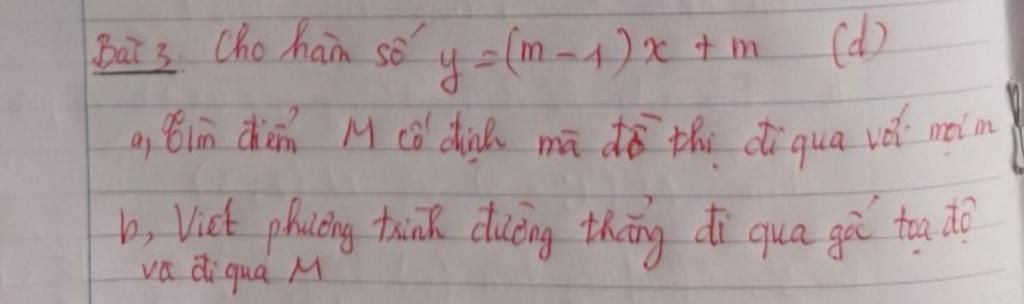 Bài 3. Cho hàm số y = (m - 1)x + m (d)
a, Tìm điểm M cố định mà đồ thị đi qua với mọi m
b, Viết phương trình đường thẳng đi qua gốc tọa độ
và đi qua M